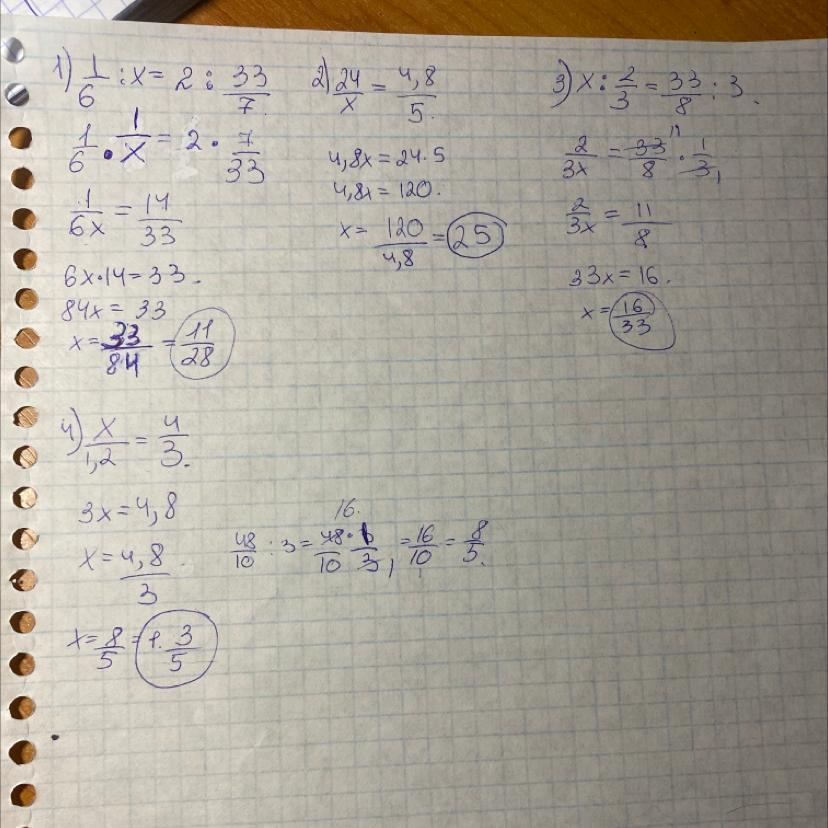 1) 1/6 : x = 2 : 33/7
1/6 · 1/x = 2 · 7/33
1/6x = 14/33
6x·14 = 33.
84x = 33
x = 33/84 = 11/28
2) 24/x = 4,8/5.
4,8x = 24·5
4,8x = 120.
x = 120/4,8 = 25
3) x : 2/3 = 33/8 : 3.
2/3x = 33/8 · 1/3
11
1
2/3x = 11/8
33x = 16.
x = 16/33
4) x/1,2 = 4/3.
3x = 4,8
x = 4,8/3.
x = 8/5 = 1. 3/5
16.
48/10 : 3 = 48·1/10 3 = 16/10 = 8/5.
1